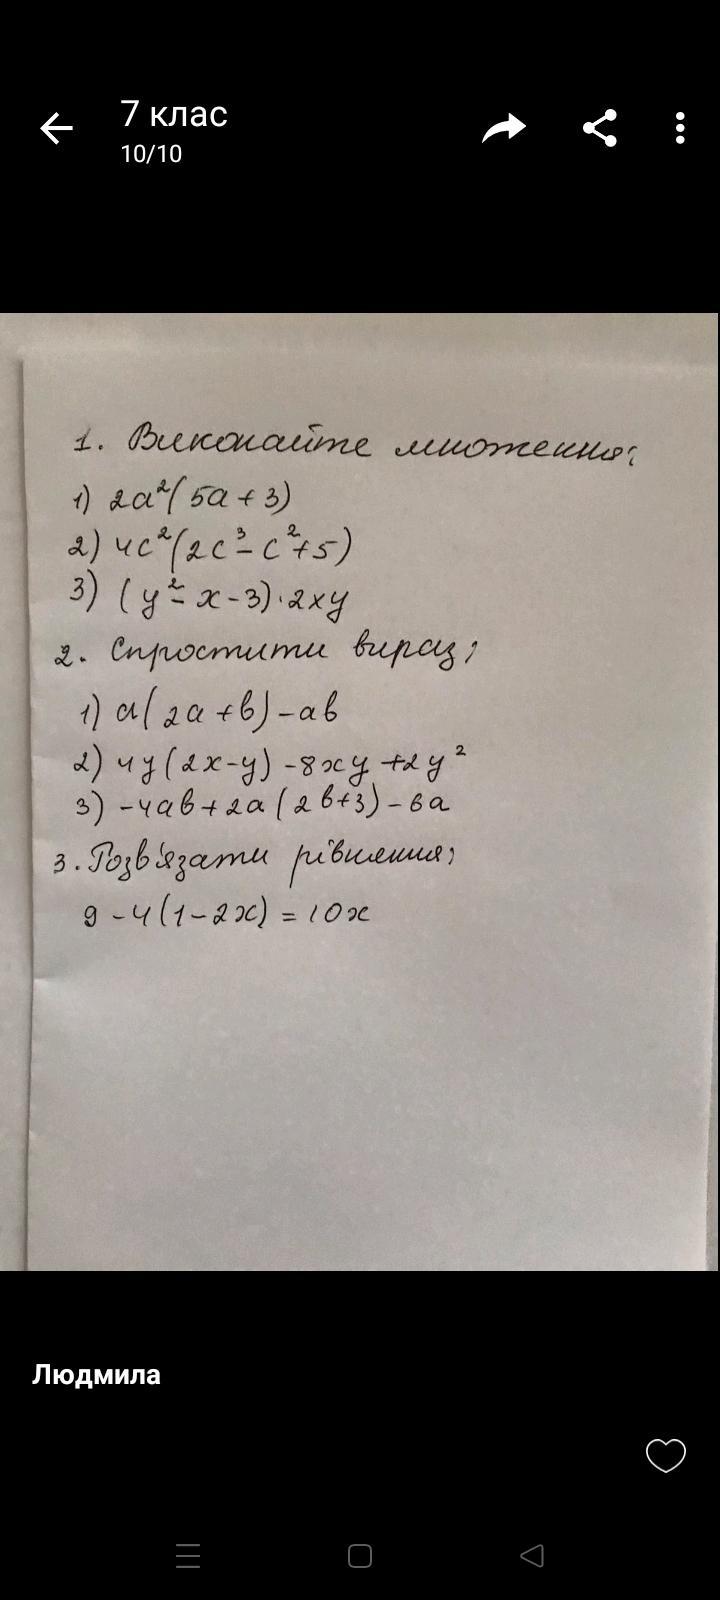 7 клас
10/10
1. Виконайте множення:
1) 2a²(5a+3)
2) 4c²(2c³-c²+5)
3) (y²-x-3)·2xy
2. Спростити вираз;
1) a(2a+b)-ab
2) 4y(2x-y)-8xy+2y²
3) -4ab+2a(2b+3)-6a
3. Розв'язати рівняння;
9-4(1-2x)=10x
Людмила